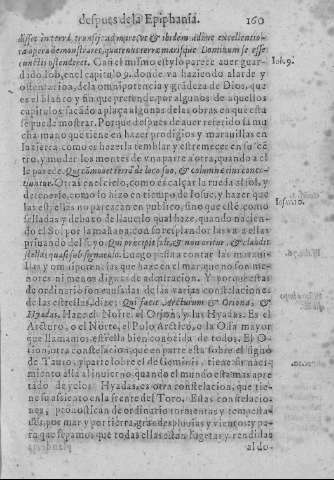 despues de la Epiphania. 160
disset in terrã, transijt ad mare, vt & ibidem adhuc excellentiora
opera demonstraret, quatenus terræ, marisque Dominum se esse
cunctis ostenderet. Con el mismo estylo parece auer guar-
dado Iob, en el capitulo 9. donde va haziendo alarde y Iob. 9.
ostentacion, de la omnipotencia y grãdeza de Dios, que
es el blanco y fin que pretende, por algunos de aquellos
capitulos, sacãdo a plaça algunas de las obras en que esta
se puede mostrar. Porque despues de auer referido la mu
cha mano que tiene en hazer prodigios y marauillas en
la tierra, como es hazerla temblar y estremecer en su cẽ
tro, y mudar los montes de vna parte a otra, quando a el
le parece. Qui cõmouet terrã de loco suo, & columnæ eius concu-
tiuntur. Otras en el cielo, como es calçar la rueda al sol, y
detenerlo, como lo hizo en tiempo de Iosue, y hazer que
las estrellas no parezcan en publico, sino que estẽ como
selladas y debaxo de llaue, lo qual haze, quando nacien-
do el Sol, por la mañana, con los resplandores va a ellas
priuando del suyo. Qui præcipit soli, & non oritur, & claudit
stellas quasi sub signaculo. Luego passa a contar las maraui-
llas y omnipotencias que haze en el mar, que no son me-
nores ni menos dignas de admiracion. Y porque estas
de ordinario son causadas de las varias constelaciones
de las estrellas, dize: Qui facit Arcturum & Oriona, &
Hyadas. Haze el Norte, el Orion, y las Hyadas. Es el
Arcturo, o el Norte, el Polo Arctico, o la Osa mayor
que llamamos, estrella bien conocida de todos. El O-
rion, otra constelacion, que en parte esta sobre el signo
de Tauro, y parte sobre el de Geminis, tiene su naci-
miento alla al inuierno, quando el mundo esta mas apre
tado de yelos. Hyadas, es otra constelacion, que tie-
ne su asiento en la frente del Toro. Estas constelacio-
nes, pronostican de ordinario tormentas y tempesta-
des, por mar y por tierra, grandes lluuias y vientos; y pa-
ra que sepamos que todas ellas estan sugetas y rendidas
al do-